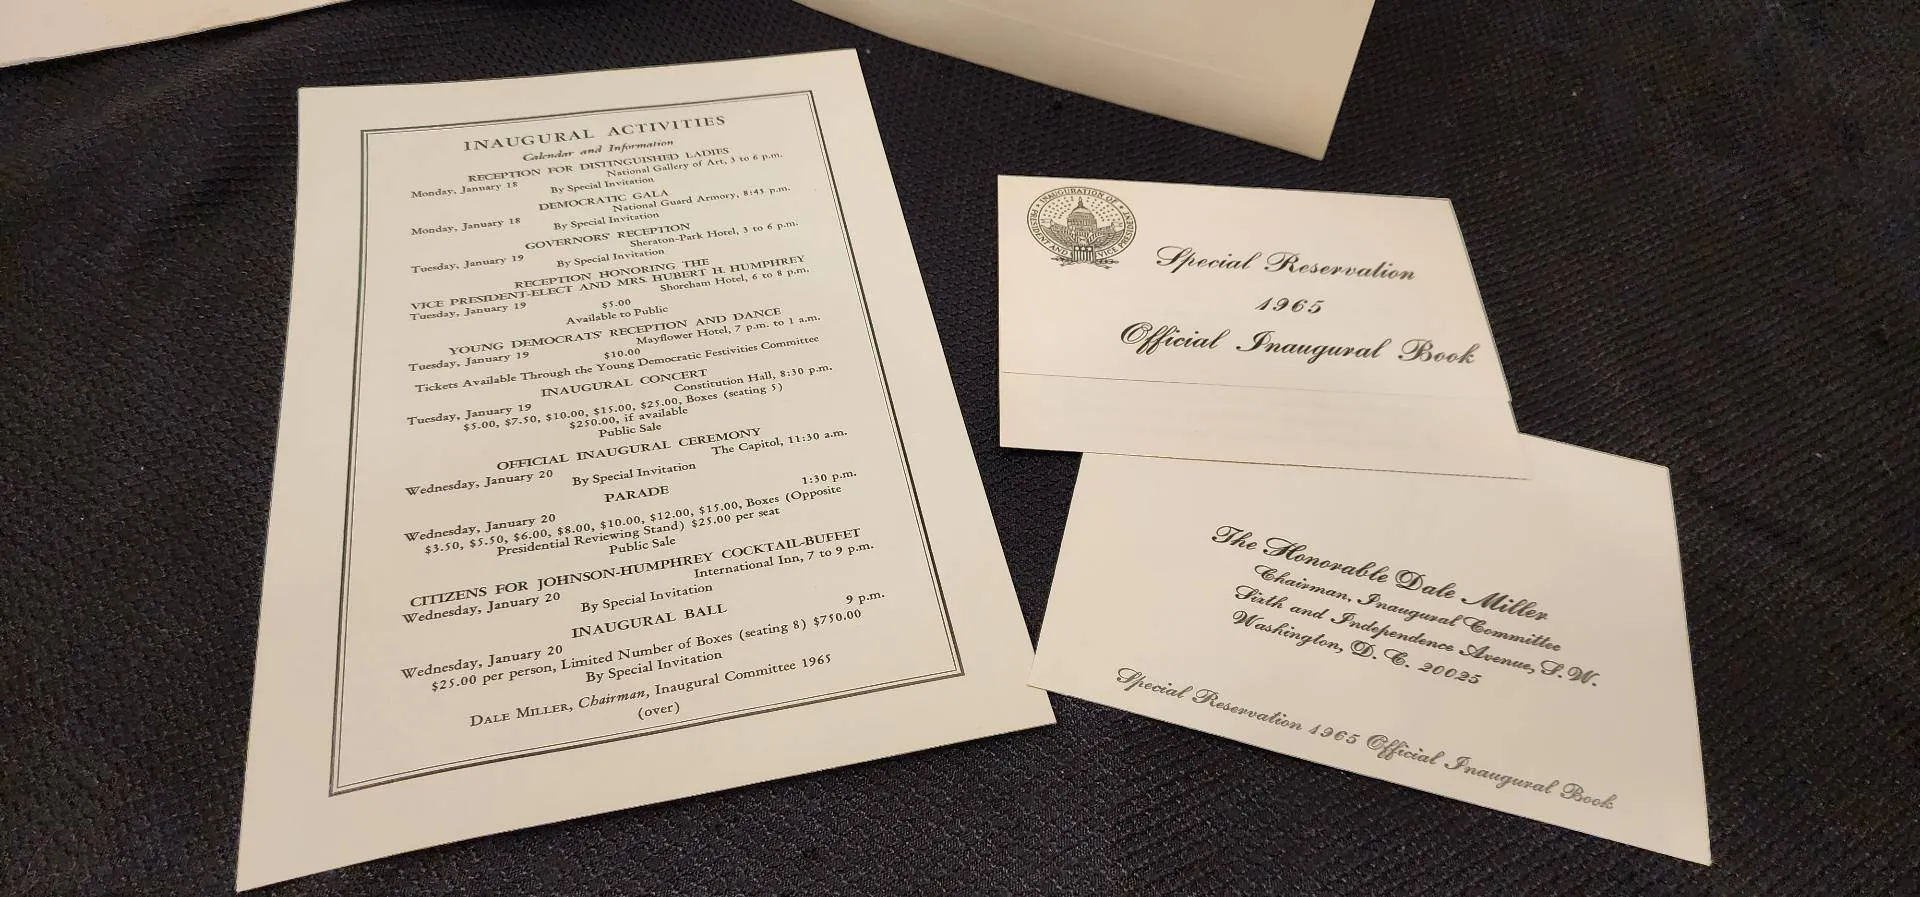 INAUGURAL ACTIVITIES
Calendar and Information
RECEPTION FOR DISTINGUISHED LADIES
Monday, January 18 National Gallery of Art, 3 to 6 p.m.
By Special Invitation
DEMOCRATIC GALA
Monday, January 18 National Guard Armory, 8:45 p.m.
By Special Invitation
GOVERNORS' RECEPTION
Tuesday, January 19 Sheraton-Park Hotel, 3 to 6 p.m.
By Special Invitation
RECEPTION HONORING THE
VICE PRESIDENT-ELECT AND MRS. HUBERT H. HUMPHREY
Tuesday, January 19 Shoreham Hotel, 6 to 8 p.m.
$5.00
Available to Public
YOUNG DEMOCRATS' RECEPTION AND DANCE
Tuesday, January 19 Mayflower Hotel, 7 p.m. to 1 a.m.
$10.00
Tickets Available Through the Young Democratic Festivities Committee
INAUGURAL CONCERT
Tuesday, January 19 Constitution Hall, 8:30 p.m.
$5.00, $7.50, $10.00, $15.00, $25.00, Boxes (seating 5)
$250.00, if available
Public Sale
OFFICIAL INAUGURAL CEREMONY
Wednesday, January 20 The Capitol, 11:30 a.m.
By Special Invitation
PARADE
Wednesday, January 20 1:30 p.m.
$3.50, $5.50, $6.00, $8.00, $10.00, $12.00, $15.00, Boxes (Opposite
Presidential Reviewing Stand) $25.00 per seat
Public Sale
CITIZENS FOR JOHNSON-HUMPHREY COCKTAIL-BUFFET
Wednesday, January 20 International Inn, 7 to 9 p.m.
By Special Invitation
INAUGURAL BALL
Wednesday, January 20 9 p.m.
$25.00 per person, Limited Number of Boxes (seating 8) $750.00
By Special Invitation
DALE MILLER, Chairman, Inaugural Committee 1965
(over)
INAUGURATION OF PRESIDENT AND VICE PRESIDENT
Special Reservation
1965
Official Inaugural Book
The Honorable Dale Miller
Chairman, Inaugural Committee
Sixth and Independence Avenue, S. W.
Washington, D. C. 20025
Special Reservation 1965 Official Inaugural Book